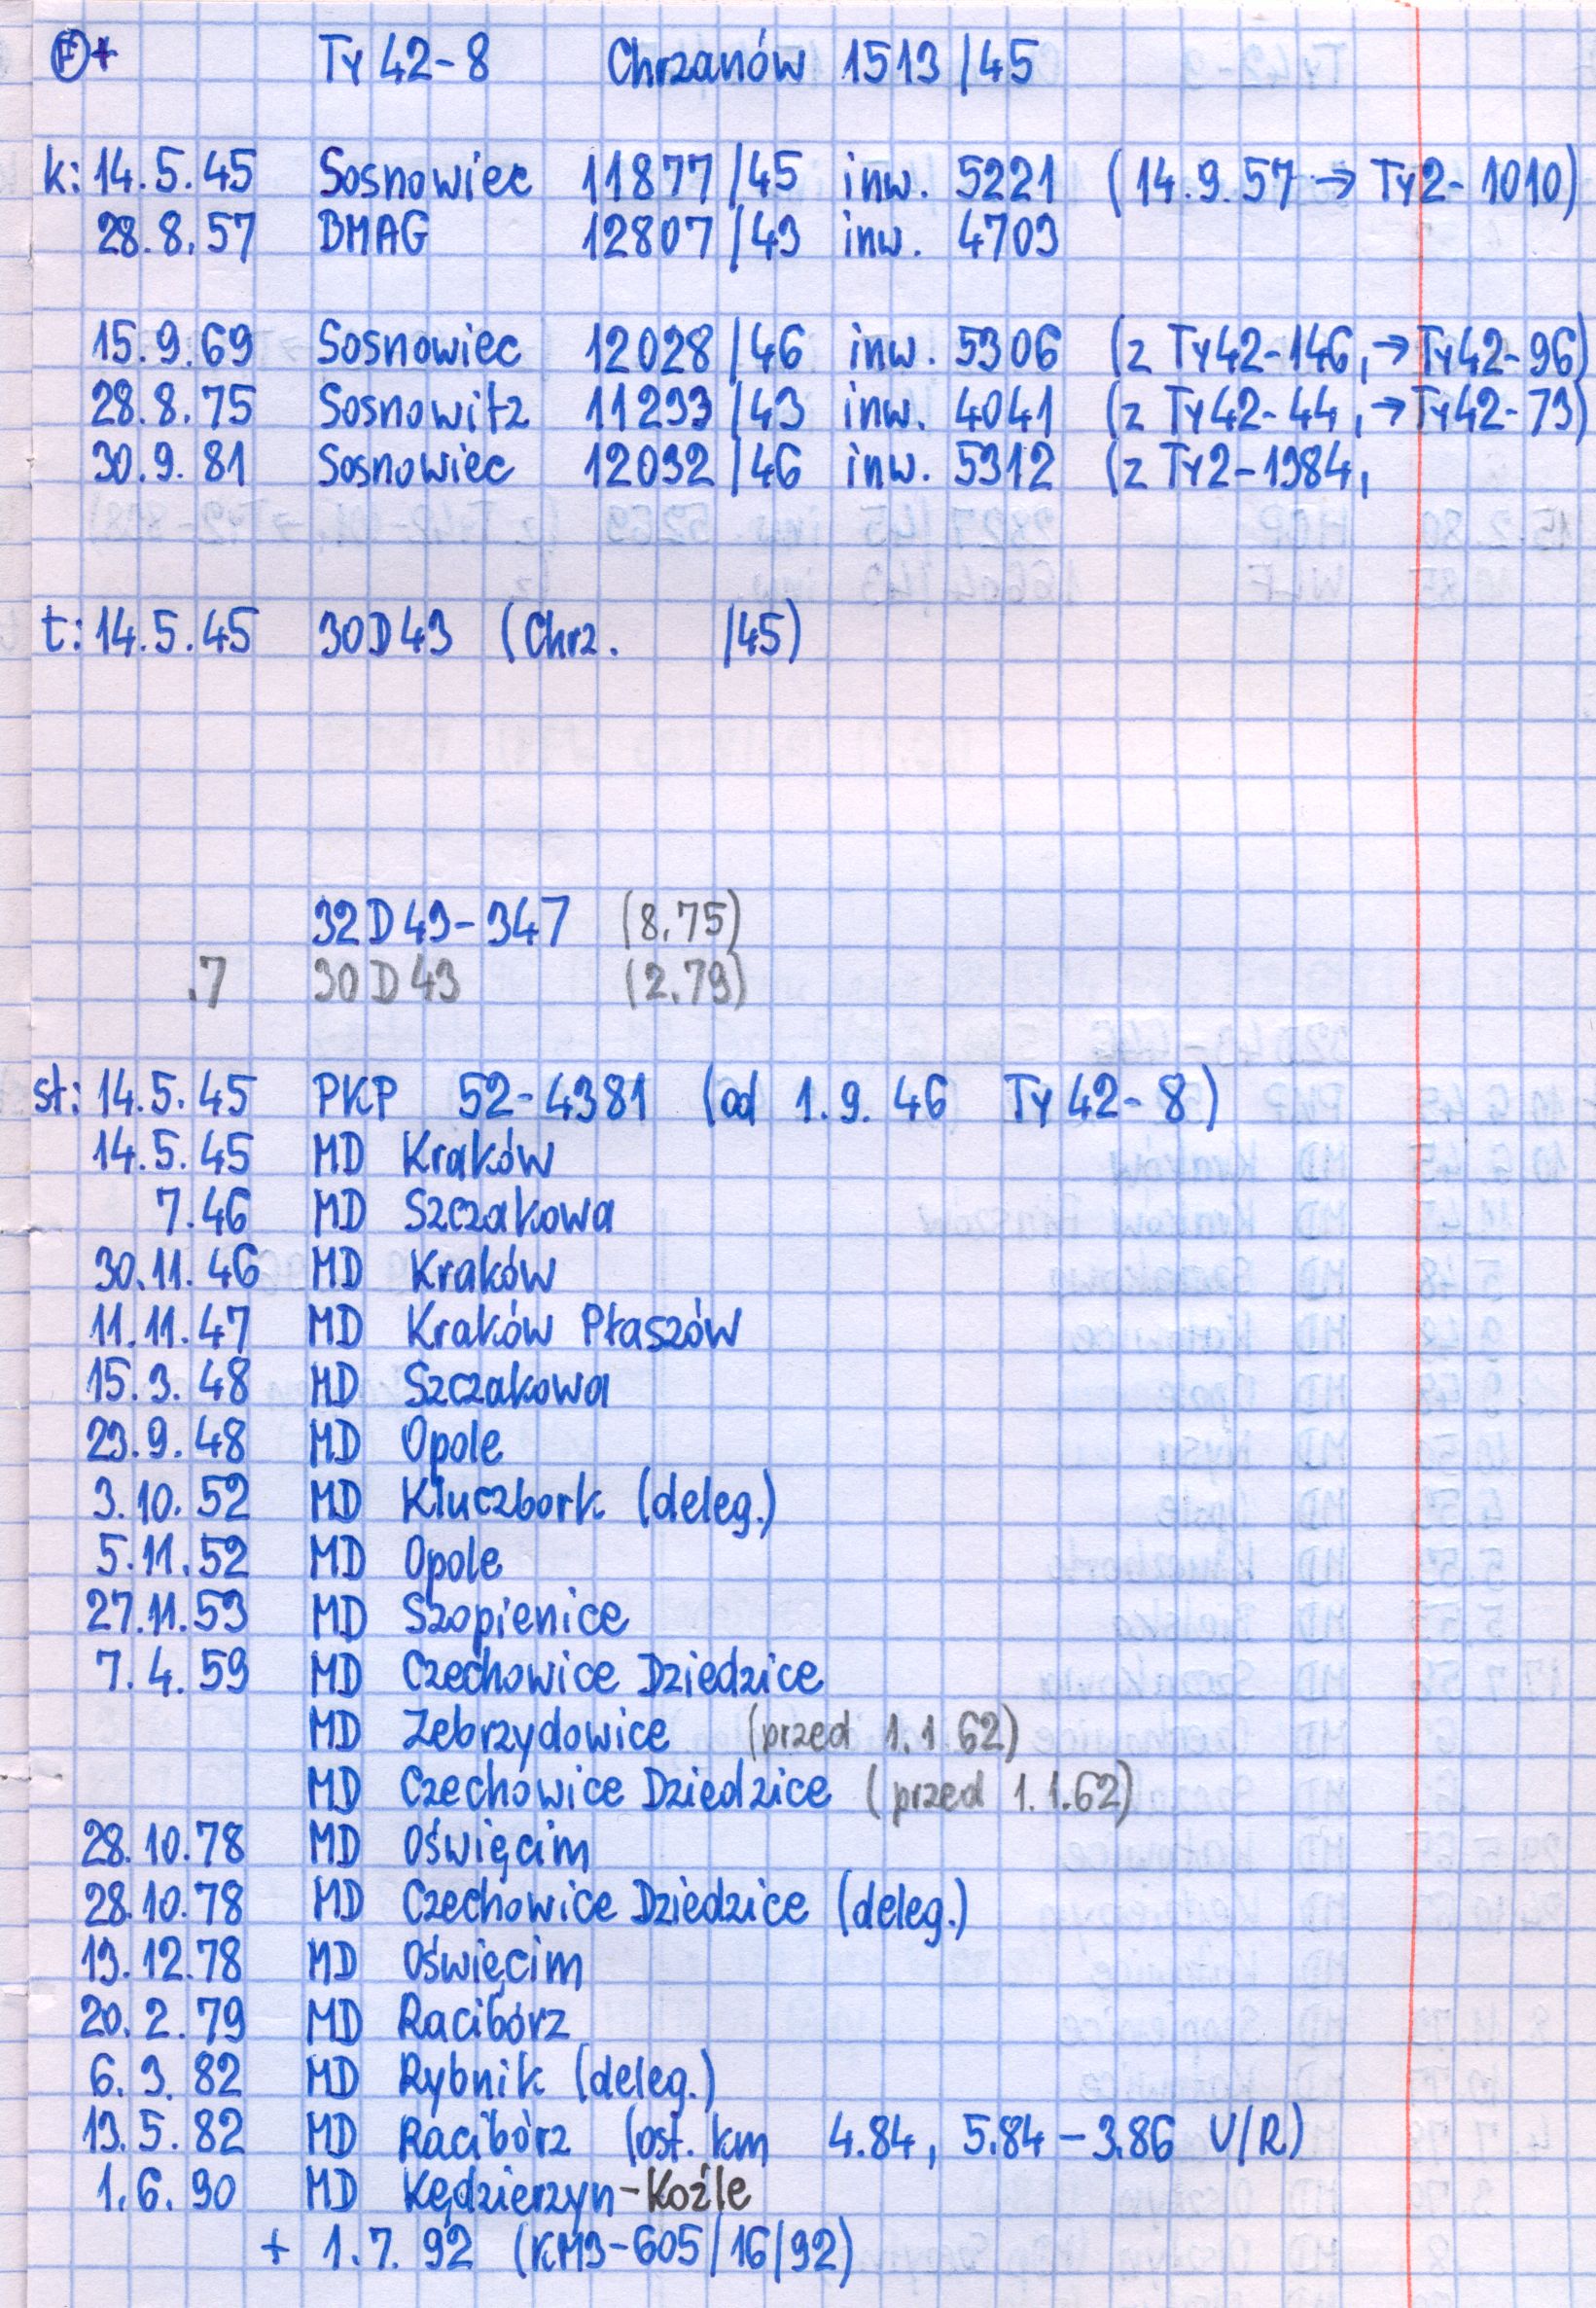 Ⓕ+ Ty 42-8 Chrzanów 1513/45
k: 14.5.45 Sosnowiec 11877/45 inw. 5221 (14.9.57 → Ty2-1010)
28.8.57 BMAG 12807/43 inw. 4703
15.9.69 Sosnowiec 12028/46 inw. 5306 (z Ty42-146, → Ty42-96)
28.8.75 Sosnowitz 11233/43 inw. 4041 (z Ty42-44, → Ty42-73)
30.9.81 Sosnowiec 12032/46 inw. 5312 (z Ty2-1384,
t: 14.5.45 30D43 (Chrz. /45)
32D43-347 (8.75)
.7 30D43 (2.79)
st: 14.5.45 PKP 52-4381 (od 1.9.46 Ty 42-8)
14.5.45 MD Kraków
7.46 MD Szczakowa
30.11.46 MD Kraków
11.11.47 MD Kraków Płaszów
15.3.48 MD Szczakowa
23.9.48 MD Opole
3.10.52 MD Kluczbork (deleg.)
5.11.52 MD Opole
27.11.53 MD Szopienice
7.4.59 MD Czechowice Dziedzice
MD Zebrzydowice (przed 1.1.62)
MD Czechowice Dziedzice (przed 1.1.62)
28.10.78 MD Oświęcim
28.10.78 MD Czechowice Dziedzice (deleg.)
13.12.78 MD Oświęcim
20.2.79 MD Racibórz
6.3.82 MD Rybnik (deleg.)
13.5.82 MD Racibórz (ost. km 4.84, 5.84-3.86 U/R)
1.6.90 MD Kędzierzyn-Koźle
+ 1.7.92 (KM3-605/16/92)